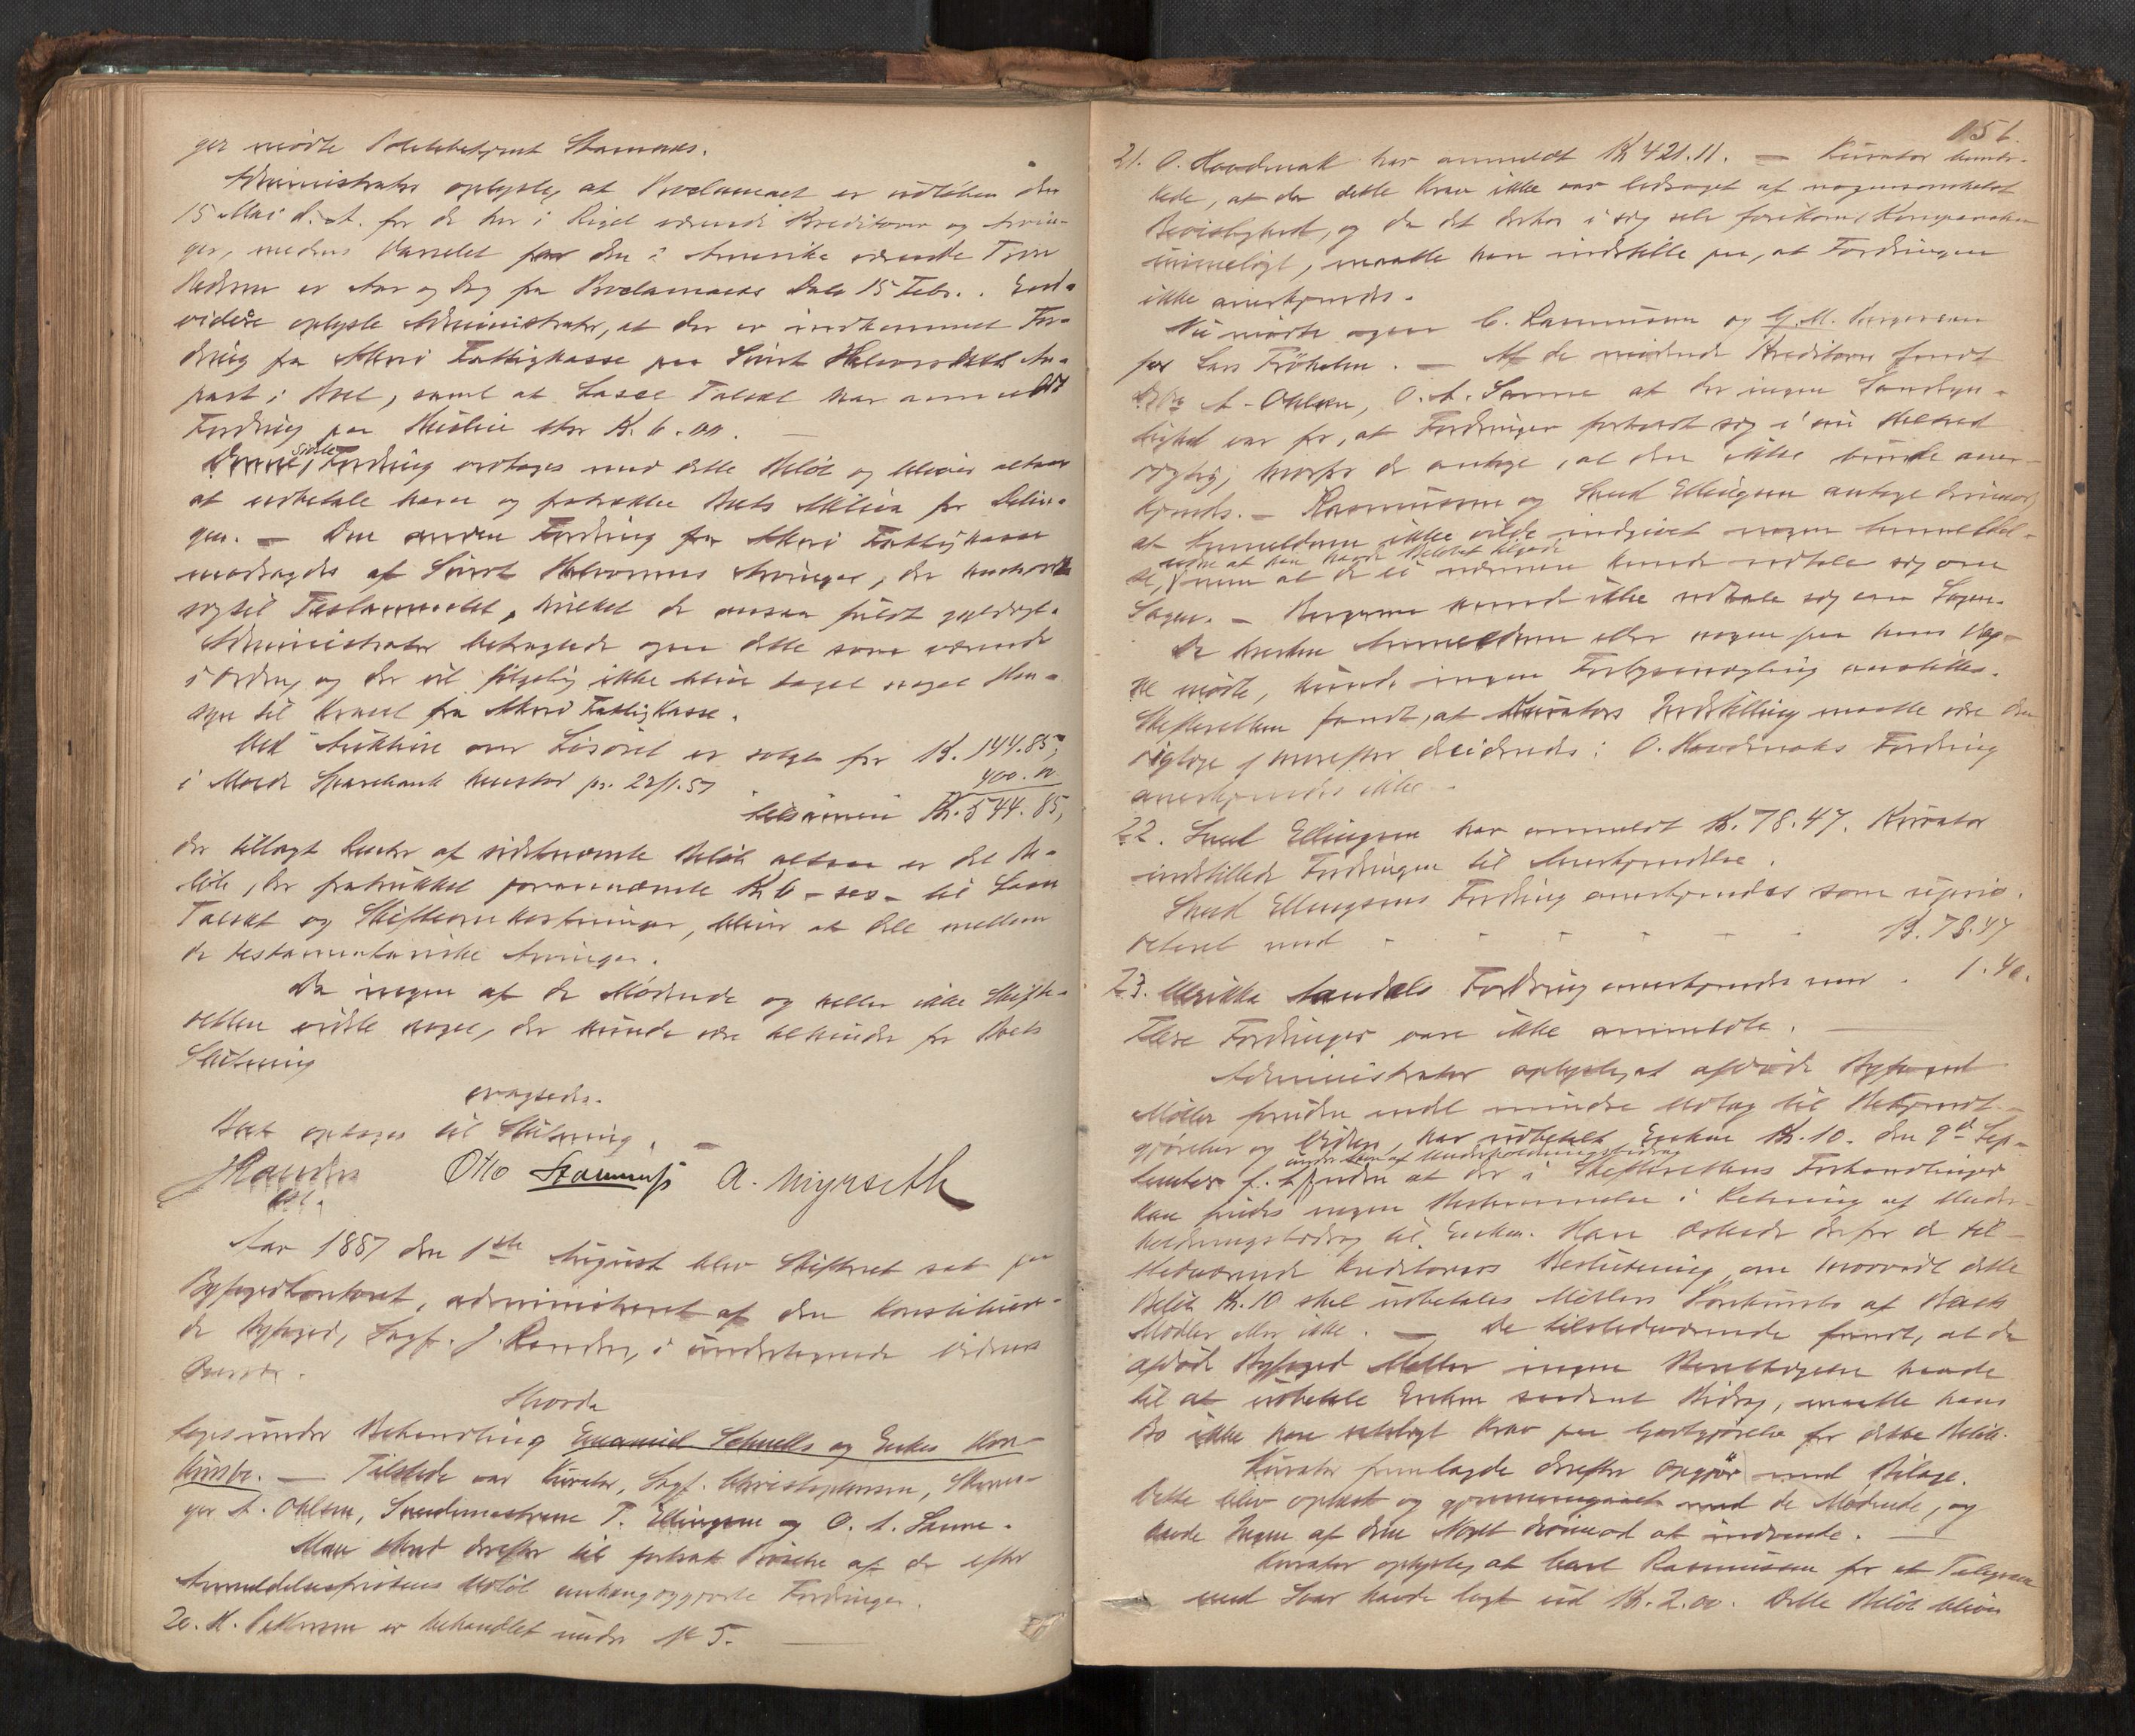 ger mødte Politibetjent Stamnæs.
Administrator oplyste, at Proclamaet er udløben den
15 Mai d. A. for de her i Riget værende Kreditorer og Arvin-
ger, medens Varselet for den i Amerika værende
er Aar og Dag fra Proclamaets Dato 15 Febr. . End-
videre oplyste Administrator, at der er indkommet For-
dring fra Akerø Fattigkasse paa Sivert Halvorsens An-
part i Boet, samt at Lasse Talset har anmeldt
Fordring paa Husleie stor Kr. 6.00. —
Denne sidste Fordring vedtages med dette Beløb og bliver altsaa
at udbetale ham og fratrække Boets Aktiva før Delin-
gen. — Den anden Fordring fra Akerø Fattigkasse
modsagdes af Sivert Halvorsens Arvinger, der henholdt
sig til Testamentet, hvilket de ansaa fuldt gyldigt.
Administrator betragtede ogsaa dette som værende
i Orden, og der vil følgelig ikke blive taget noget Hen-
syn til Kravet fra Akerø Fattigkasse.
Ved Auktion over Løsøret er solgt for Kr. 144.85,
i Molde Sparebank henstod pr. 22/1.57 400.00
tilsammen Kr. 544.85,
der tillagt Renter af sidstnævnte Beløb altsaa er det Be-
løb, der fratrukket forannævnte Kr 6 – sex – til Lasse
Talset og Skifteomkostninger, bliver at dele mellem
de testamentariske Arvinger.
Da ingen af de Mødende og heller ikke Skifte-
retten vidste noget, der kunde være til Hinder for Boets
Slutning
eragtedes.
Boet optages til Slutning. —
J Rander Otto Stamnæs A. Myrseth
cst.
Aar 1887 den 1ste August blev Skifteret sat paa
Byfogedkontoret, administreret af den konstitueren-
de Byfoged, Sagf. J. Rander, i undertegnede Vidners
Overvær.
Hvorda
toges under Behandling Emanuel Schnells og Enkes Kon-
kursbo. — Tilstede var Kurator, Sagf. Christophersen, Skræd-
ger A. Ohlsen, Snedkermestrene T. Ellingsen og O. A. Sanne.
Man skred derefter til fortsat Prøvelse af de efter
Anmeldelsesfristens Udløb anhængiggjorte Fordringer.
20. H. Pettersen er behandlet under № 5. —
151.
21. O. Hovdenak har anmeldt Kr 421.11. — Kurator bemær-
kede, at da dette Krav ikke var ledsaget af nogensomhelst
Bevislighed, og da det derhos i sig selv forekom Komparenten
urimeligt, maatte han indstille paa, at Fordringen
ikke anerkjendes.
Nu mødte ogsaa C. Rasmussen og G. M. Bergersen
for Lars Frøholm. — Af de mødende Kreditorer fandt
A. Ohlsen, O. A. Sanne at der ingen Sandsyn-
lighed var for, at Fordringen forholdt sig i sin Helhed
rigtig, hvorfor de antage, at den ikke burde aner-
kjendes. — Rasmussen og Knud Ellingsen antage derimod,
at Anmelderen ikke vilde indgivet nogen Anmeldel-
se, uden at han havde Beløbet tilgode
men at de ei nærmere kunde udtale sig om
Sagen. — Bergersen kunde ikke udtale sig om Sagen.
Da hverken Anmelderen eller nogen paa hans Veg-
ne mødte, kunde ingen Forligsmægling anstilles.
Skifteretten fandt, at Kurators Indstilling maatte være den
rigtige, hvorefter decideredes: O. Hovdenaks Fordring
anerkjendes ikke. —
22. Knud Ellingsen har anmeldt Kr. 78.47. Kurator
indstillede Fordringen til Anerkjendelse.
Knud Ellingsens Fordring anerkjendes som uprio-
riteret med - - - - - - Kr. 78.47
23. Ulrikke Sandals Fordring anerkjendes med . 1.40.
Flere Fordringer vare ikke anmeldte. —
Administrator oplyste, at afdøde Byfoged
Møller foruden endel mindre Udlæg til Bekjendt-
gjørelser og Vidner, har udbetalt Enken Kr. 10. den 9de Sep-
tember f. A.
under Navn af Underholdningsbidrag
uden at der i Skifterettens Forhandlinger
kan findes nogen Bestemmelse i Retning af Under-
holdningsbidrag til Enken. Han æskede derfor de til-
stedeværende Kreditorers Beslutning om hvorvidt dette
Beløb Kr. 10 skal udbetales Møllers Konkursbo af Boets
Midler eller ikke. — De tilstedeværende fandt, at da
afdøde Byfoged Møller ingen Bemyndigelse havde
til at udbetale Enken saadant Bidrag, maatte hans
Bo ikke have retsligt Krav paa Godtgjørelse for dette Beløb.
Kurator fremlagde derefter Opgjør med Bilage.
Dette blev oplæst og gjennemgaaet med de Mødende, og
havde Ingen af dem Noget derimod at indvende. —
Kurator oplyste, at Carl Rasmussen for et Telegram
med Svar havde lagt ud Kr. 2.00. Dette Beløb bliver